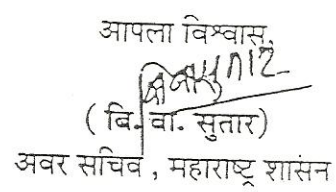 आपला विश्वासू,
( बि. वा. सुतार)
अवर सचिव , महाराष्ट्र शासन